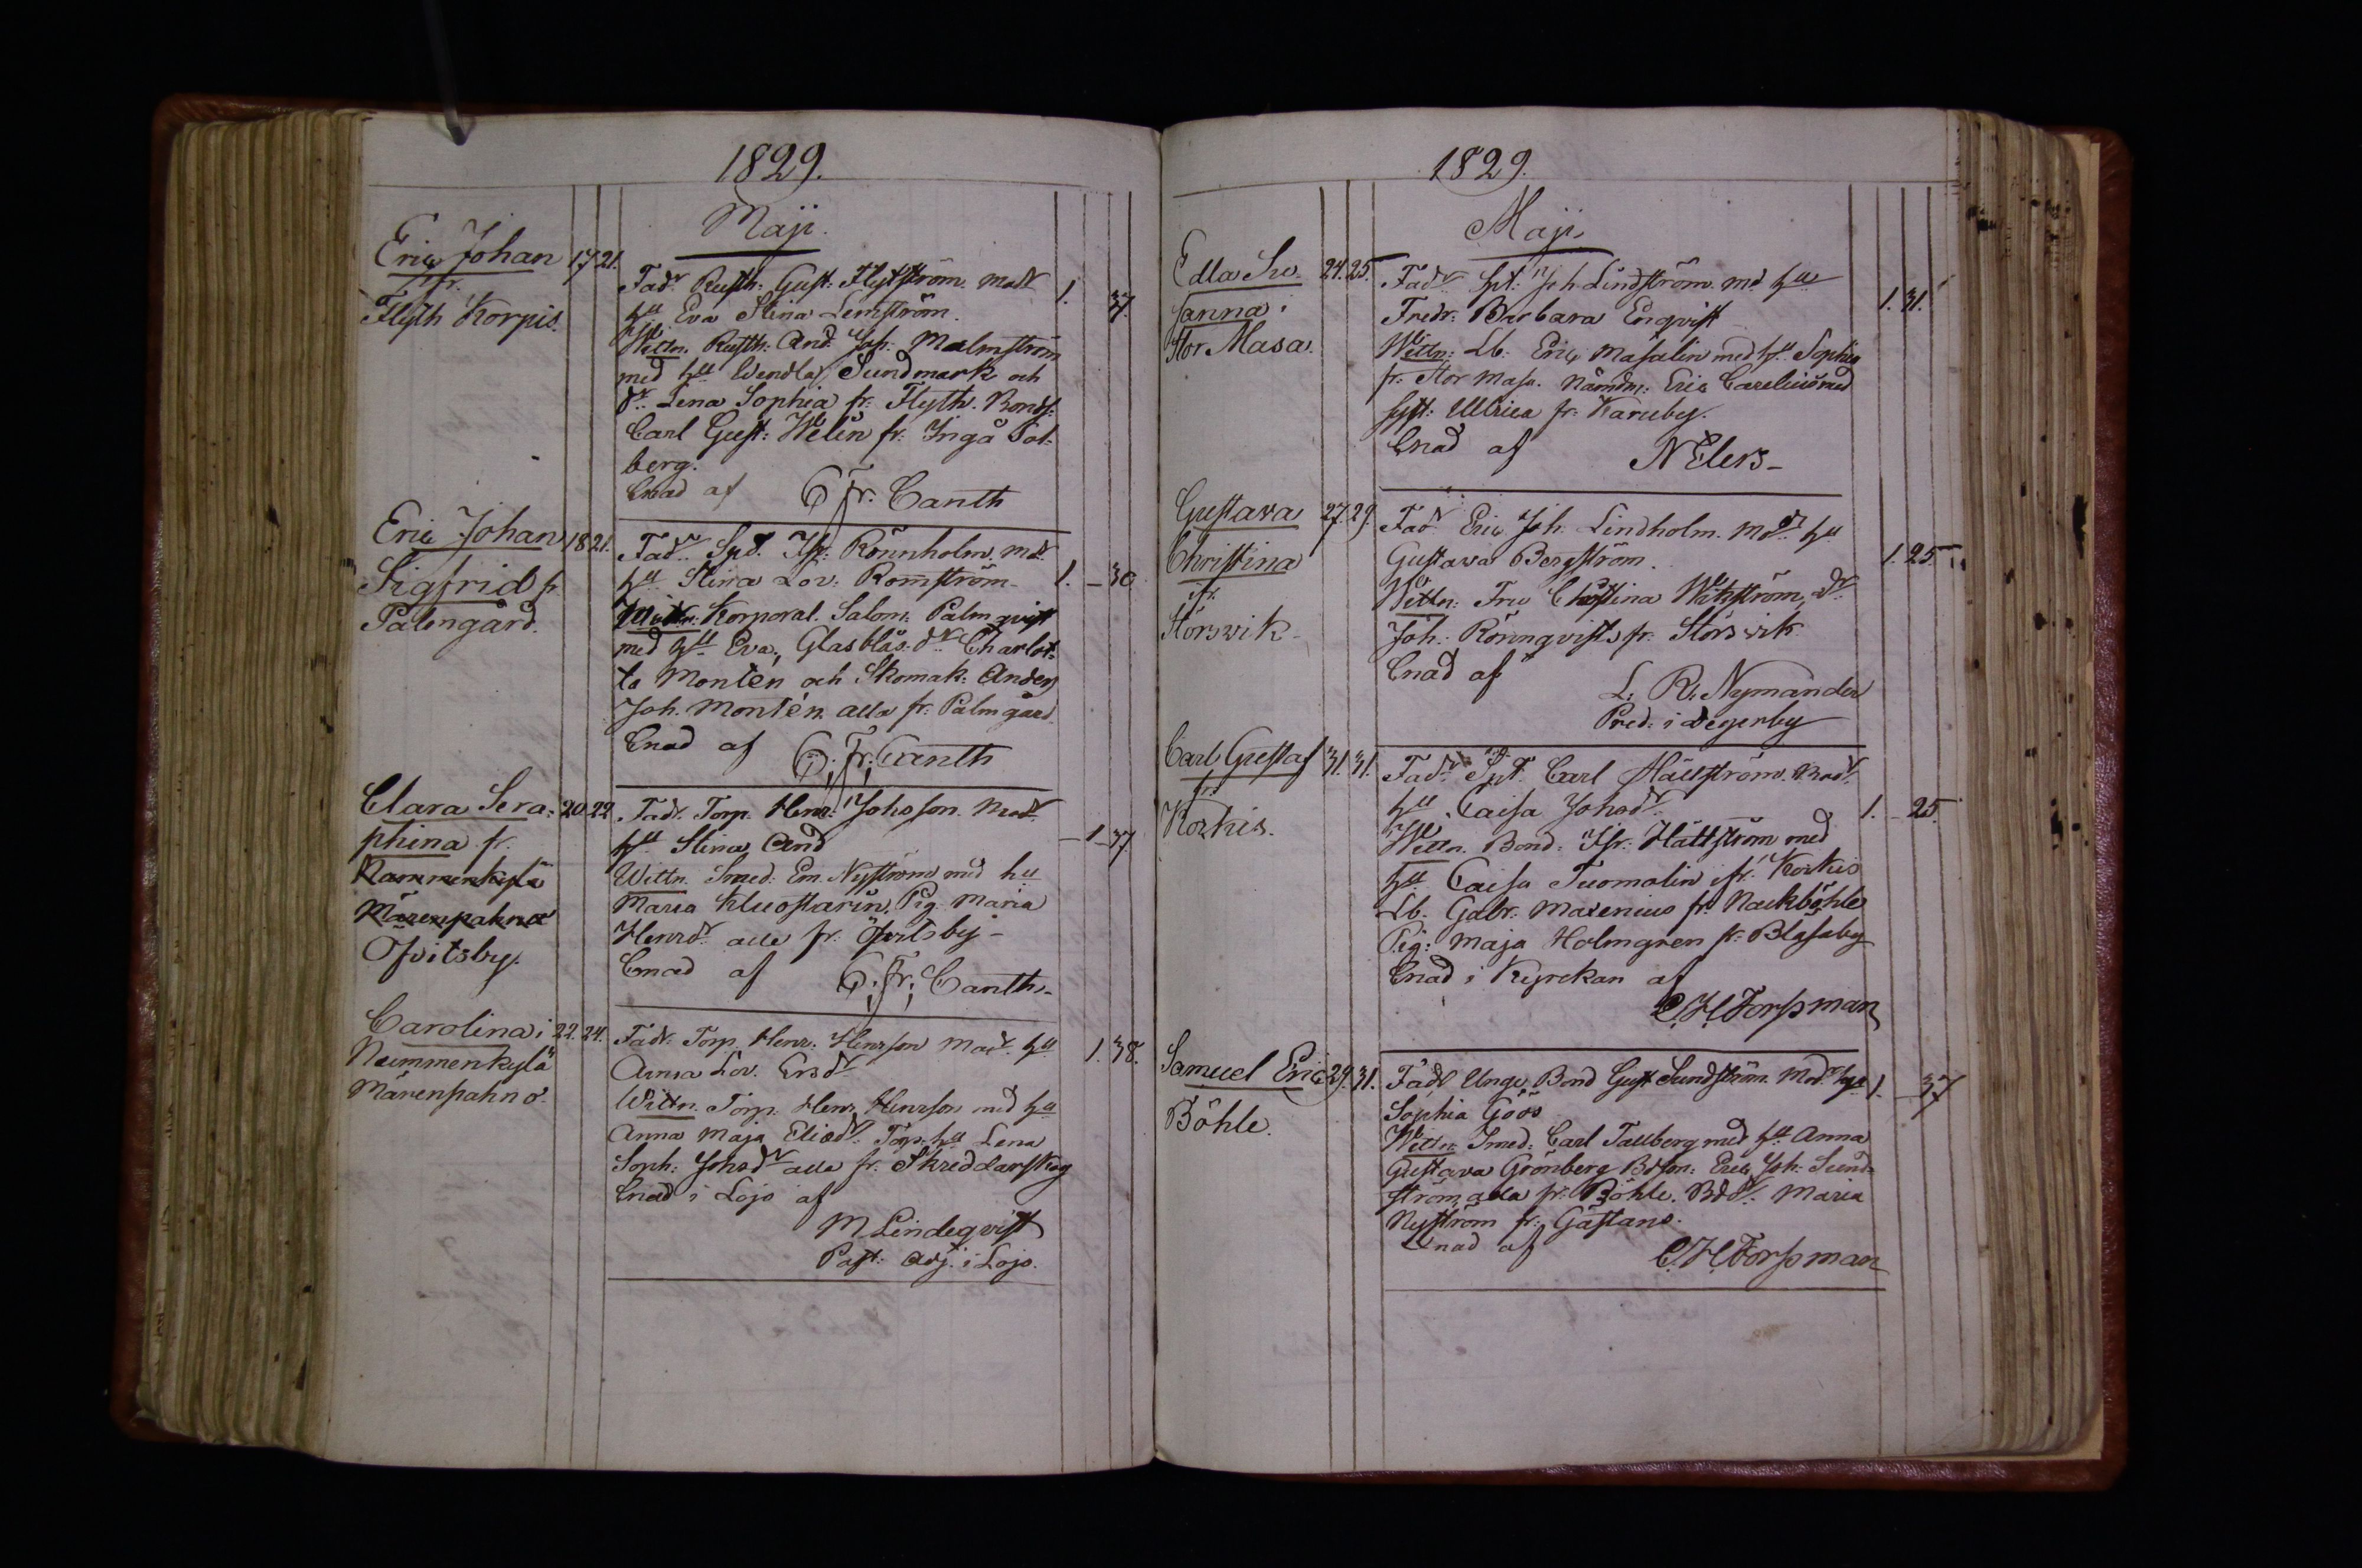 1829.
Maji.
Eric Johan 17 21.
fr.
Flyth Korpis.
Fadr. Rusth: Gust: Flytström. Modr
hu Eva Stina Lemström. 1. 37.
Wittn. Rusth: And. Joh: Malmström
med hu Wendla Sundmark och
dr Lena Sophia fr: Flyth. Bonds:
Carl Gust: Welin fr: Ingå Sol-
berg.
Cnad af C. Fr. Canth
Eric Johan 18 21.
Sigfrid fr
Palmgård.
Fadr. Sjd. Isr. Rönnholm. Modr
hu Stina Lov: Romström 1. - 30
Wittn: Korporal. Salom: Palmqvist
med hu Eva, Glasblås: dr Charlot-
ta Montén och Skomak: Anders
Joh. Montén alla fr: Palmgård.
Cnad af C. Fr. Canth
Clara Sera- 20 22
phina fr.
Nammenkylä
Märenpahna
Ofvitsby.
Fadr. Torp. Henr: Johsson. Modr.
hu Stina And - 1 - 37
Wittn. Smed: Em. Nyström med hu
Maria Kluostarin. Pig. Maria
Henrdr. alla fr. Öfvitsby -
Cnad af C. Fr. Canth.
Carolina i 22. 24.
Nummenkylä
Märenpahno.
Fadr. Torp. Henr: Henrson Modr. hu 1. 38.
Anna Lov. Ersdr
Wittn. Torp. Henr Henrson med hu
Anna Maja Eliædr. Torp. hu Lena
Soph: Johsdr alla fr. Skreddarskog
Cnad i Lojo af
M Lindeqvist
Past: Adj. i Lojo.
1829.
Maji.
Edla Su- 24. 25.
sanna i
Stor Masa.
Fadr. Joh. Lindström. md hu
Fredr: Barbara Enqvist 1. 31.
Wittn: Lb. Eric Masalin med hu Sophia
fr. Stor Masa. Nämdm: Eric Carelius med
Syst: Ullrica fr: Karuby.
Cnad af N Elers -
Gustava 27. 29.
Christina
fr.
Störsvik -
Fadr Eric Joh. Lindholm. Modr. hu
Gustava Bergström. 1. 25.
Wittn: Fru Christina Wikström, dr
Joh: Rönnqvists fr: Störsvik
Cnad af
L. R. Nymander
Pred: i Degerby
Carl Gustaf 31. 31.
fr.
Korkis.
Fadr. Carl Hällström. Modr.
hu Caisa Johsdr. 1. - 25.
Wittn. Bond: Isr: Hällström med
hu Caisa Tuomolin ifr: Korkis
Lb. Gabr. Maxenius fr. Nackböhle
Pig: Maja Holmgren fr: Blåsaby
Cnad i Kyrckan af
C. H. Forssman
Samuel Eric 29. 31.
Böhle.
Fadr Unge Bond Gust Sundström. Modr. hu 1. - 37
Sophia Göös
Wittn: Smed: Carl Tallberg med hu Anna
Gustava Grönberg Bdson: Eric Joh: Sund-
ström alla fr: Böhle. Bddr. Maria
Nyström fr: Gästans.
Cnad af C. H. Forssman